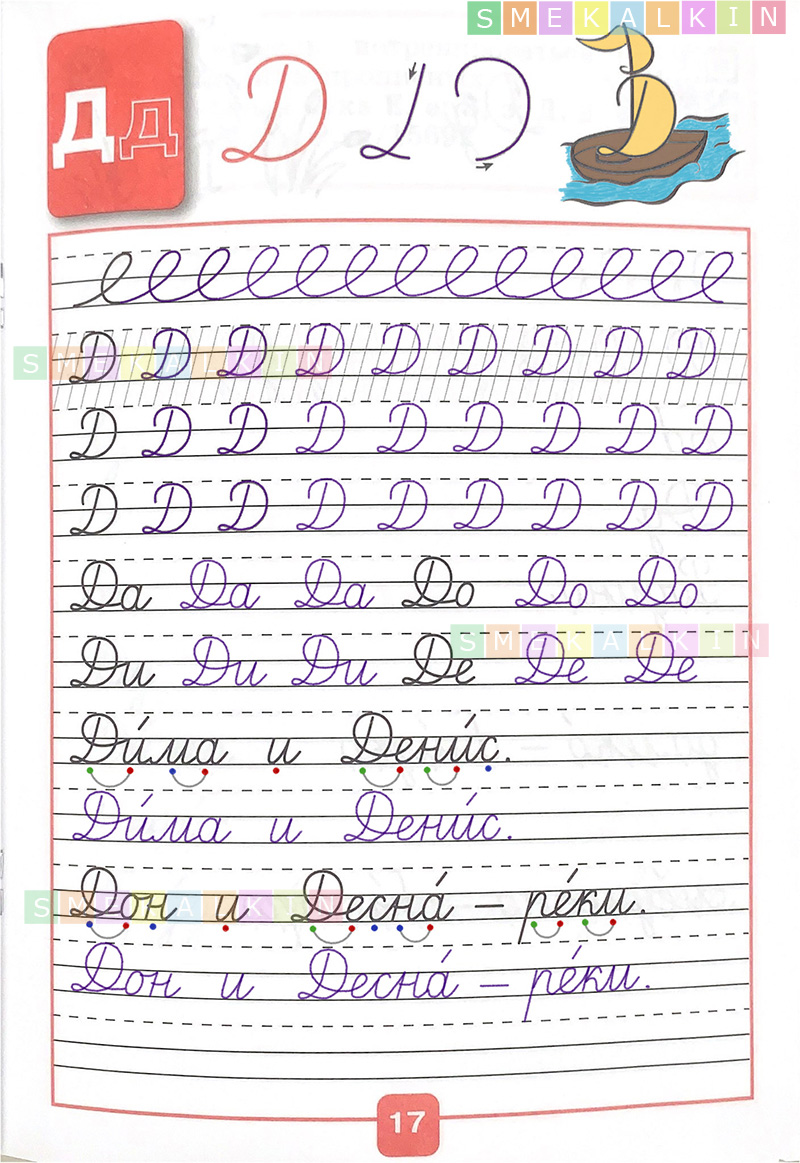 SMEKALKIN
Д д
Д
Д Д Д Д Д Д Д Д Д
SMEKALKIN
Д Д Д Д Д Д Д Д Д
Д Д Д Д Д Д Д Д Д
Да Да Да До До До
SMEKALKIN
Ди Ди Ди Де Де Де
Ди́ма и Дени́с.
Ди́ма и Дени́с.
SMEKALKIN
Дон и Десна́ – ре́ки.
Дон и Десна́ – ре́ки.
17